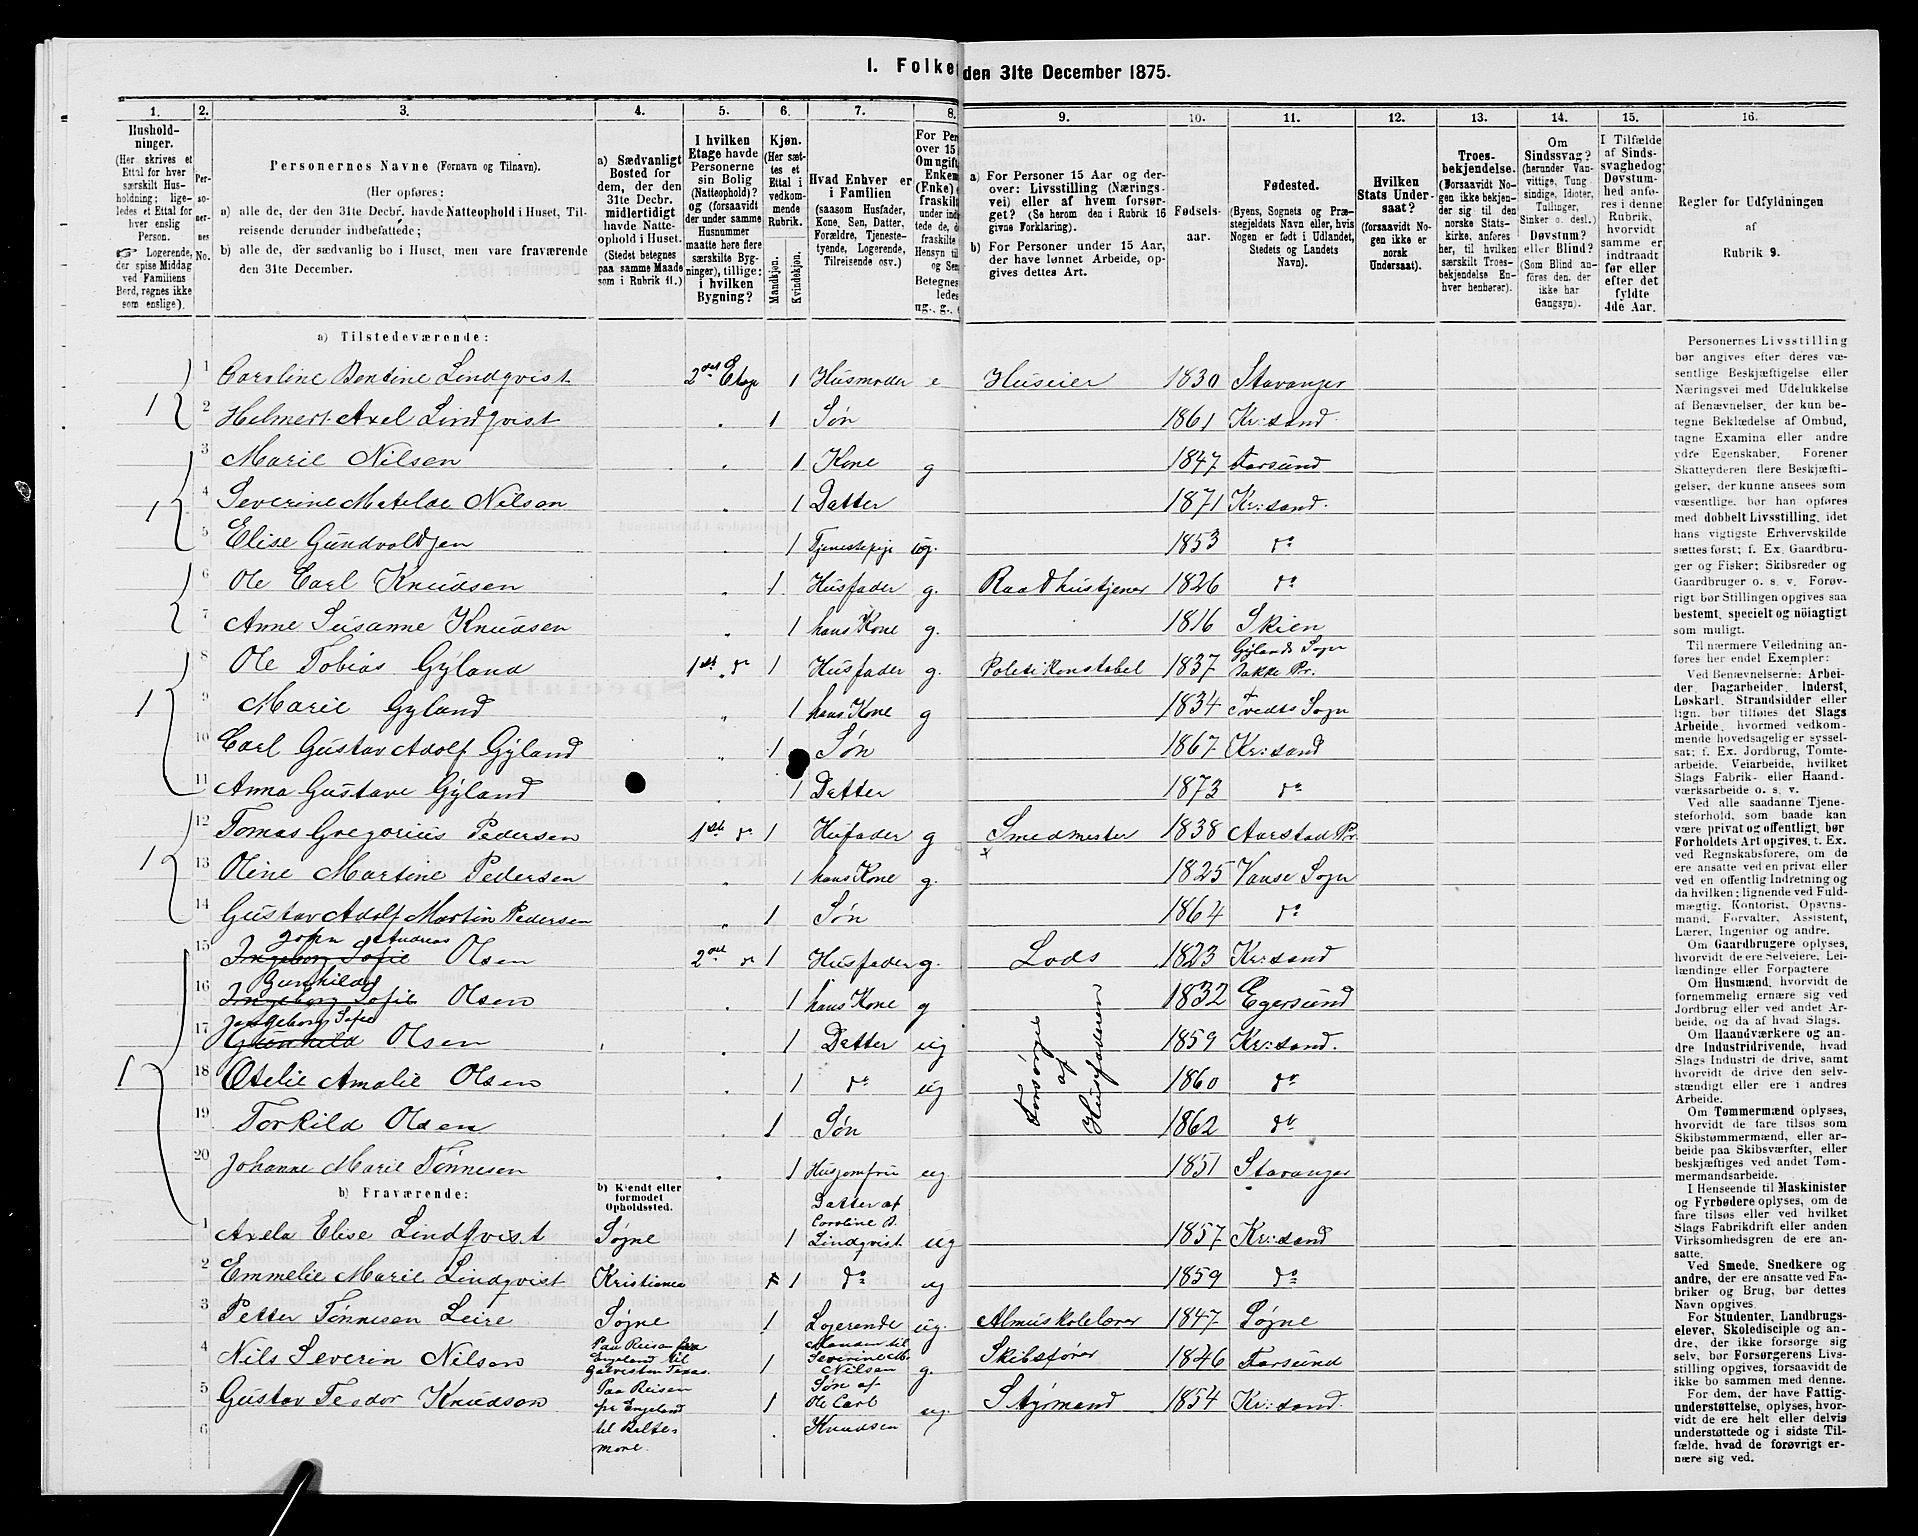 I. Folke
den 31te December 1875.
1.
2.
3.
4.
5.
6.
7.
8.
9.
10.
11.
12.
13.
14.
15.
16.
Hushold-
ninger.
(Her skrives et
Ettal for hver
særskilt Hus-
holdning; lige-
ledes et Ettal for
hver enslig
Person.
☞ Logerende,
der spise Middag
ved Familiens
Bord, regnes ikke
som enslige).
Per-
so-
ner-
nes
No.
Personernes Navne (Fornavn og Tilnavn).
(Her opføres:
a) alle de, der den 31te Decbr. havde Natteophold i Huset, Til-
reisende derunder indbefattede;
b) alle de, der sædvanlig bo i Huset, men vare fraværende
den 31te December.
a) Sædvanligt
Bosted for
dem, der den
31te Decbr.
midlertidigt
havde Natte-
ophold i Huset.
(Stedet betegnes
paa samme Maade
som i Rubrik 11.)
I hvilken
Etage havde
Personerne
sin Bolig
(Natteophold)?
og (forsaavidt
der under samme
Husnummer
maatte høre flere
særskilte Byg-
ninger), tillige:
i hvilken
Bygning?
Kjøn.
(Her sæt-
tes et
Ettal i
vedkom-
mende
Rubrik.
Mandkjøn.
Kvindekjøn.
Hvad Enhver er
i Familien
(saasom Husfader,
Kone, Søn, Datter,
Forældre, Tjeneste-
tyende, Logerende,
Tilreisende osv.).
For Per
over 15
Om ugift
Enkem
(Enke) e
fraskilt
under indt
tede de, d
fraskilte
Hensyn til
og Sen
Betegnes
ledes
ug., g., e
a) For Personer 15 Aar og der-
over: Livsstilling (Nærings-
vei) eller af hvem forsør-
get? (Se herom den i Rubrik 16
givne Forklaring).
b) For Personer under 15 Aar,
der have lønnet Arbeide, op-
gives dettes Art.
Fødsels-
aar.
Fødested.
(Byens, Sognets og Præ-
stegjeldets Navn eller, hvis
Nogen er født i Udlandet,
Stedets og Landets
Navn).
Hvilken
Stats Under-
saat?
(forsaavidt No-
gen ikke er
norsk
Undersaat).
Troes-
bekjendelse.
(Forsaavidt No-
gen ikke bekjen-
der sig til den
norske Stats-
kirke, anføres
her, til hvilken
særskilt Troes-
bekjendelse En-
hver henhører).
Om
Sindssvag?
(herunder Van-
vittige, Tung-
sindige, Idioter,
Tullinger,
Sinker o. desl.)
Døvstum?
eller Blind?
(Som Blind an-
føres den, der
ikke har
Gangsyn).
I Tilfælde
af Sinds-
svaghed og
Døvstum-
hed anfø-
res i denne
Rubrik,
hvorvidt
samme er
indtraadt
før eller
efter det
fyldte
4de Aar.
Regler for Udfyldningen
af
Rubrik 9.
a) Tilstedeværende:
1 1 Caroline Bentine Lindqvist 2det Etage 1 Husmoder e Huseier 1830 Stavanger
2 Helmert Axel Lindqvist 1 Søn 1861 Kr:sand.
1 3 Marie Nilsen 1 Kone g 1847 Farsund
4 Severine Matelde Nilson 1 Datter 1871 Kr:sand.
5 Elise Gundvoldsen 1 Tjenestepige ug. 1853 do
6 Ole Carl Knudsen 1 Husfader g. Raadhustjener 1826 do
7 Anne Susanne Knudsen 1 hans Kone g. 1816 Skien
1 8 Ole Tobias Gyland 1ste do 1 Husfader g. Politikonstabel 1837 Gylands Sogn
Bakke Pr.
9 Marie Gyland 1 hans Kone g 1834 Tvedts Sogn
10 Carl Gustav Adolf Gyland 1 Søn 1867 Kr:sand
11 Anna Gustave Gyland 1 Datter 1873 do
1 12 Tomas Gregorius Pedersen 1ste do 1 Hufader g Smedmester 1838 Aarstad Pr.
13 Oline Martine Pedersen 1 hans Kone g. 1825 Vanse Sogn
14 Gustav Adolf Martin Pedersen 1 Søn 1864 do
John Andreas
1 15 Ingeborg Sofie Olsen 2det do 1 Husfader g. Lods 1823 Kr:sand
Gunhild
16 Ingeborg Sofie Olsen 1 hans Kone g 1832 Egersund
Ingeborg Sofie
17 Gunhild Olsen 1 Datter ug 1859 Kr:sand.
18 Otelie Amalie Olsen 1 do ug 1860 do
19 Torkild Olsen 1 Søn 1862 do
Forsørges
af
Husfaderen
20 Johanne Marie Tønnesen 1 Husjomfru ug 1851 Stavanger
b) Fraværende:
b) Kjendt eller
formodet
Opholdssted.
1 Axela Elise Lindqvist Søgne 1 Datter af
Caroline B.
Lindqvist. ug 1857 Kr:sand
2 Emmelie Marie Lindqvist Kristiania 1 do ug 1859 do
3 Petter Tønnesen Leire Søgne 1 Logerende ug. Almuskolelærer 1847 Søgne
4 Nils Severin Nilson Paa Reise fra
England til
Galvesten Texas. 1 Manden til
Severine M.
Nilsen g. Skibsfører 1846 Farsund
5 Gustav Teodor Knudson Paa Reisen
fra England
til Balte-
more. 1 Søn af
Ole Carl
Knudsen ug. Styrmand 1854 Kr:sand.
6
Personernes Livsstilling
bør angives efter deres væ-
sentlige Beskjæftigelse eller
Næringsvei med Udelukkelse
af Benævnelser, der kun be-
tegne Beklædelse af Ombud,
tagne Examina eller andre
ydre Egenskaber. Forener
Skatteyderen flere Beskjæfti-
gelser, der kunne ansees som
væsentlige, bør han opføres
med dobbelt Livsstilling, idet
hans vigtigste Erhvervskilde
sættes først; f. Ex. Gaardbru-
ger og Fisker; Skibsreder og
Gaardbruger o. s. v. Forøv-
rigt bør Stillingen opgives saa
bestemt, specielt og nöiagtigt
som muligt.
Til nærmere Veiledning an-
føres her endel Exempler:
Ved Benævnelserne: Arbei-
der, Dagarbeider, Inderst,
Løskarl, Strandsidder eller
lign. bør tilføies det Slags
Arbeide, hvormed vedkom-
mende hovedsagelig er syssel-
sat; f. Ex. Jordbrug, Tomte-
arbeide, Veiarbeide, hvilket
Slags Fabrik- eller Haand-
værksarbeide o. s. v.
Ved alle saadanne Tjene-
steforhold, som baade kan
være privat og offentligt, bør
Forholdets Art opgives, t. Ex.
ved Regnskabsførere, om de
ere ansatte ved en privat eller
ved en offentlig Indretning og
da hvilken; lignende ved Fuld-
mægtig, Kontorist, Opsyns-
mand, Forvalter, Assistent,
Lærer, Ingeniør og andre.
Om Gaardbrugere oplyses,
hvorvidt de ere Selveiere, Lei-
lændinge eller Forpagtere
Om Husmænd, hvorvidt de
fornemmelig ernære sig ved
Jordbrug eller ved andet Ar-
beide, og da af hvad Slags.
Om Haandværkere og an-
dre Industridrivende, hvad
Slags Industri de drive, samt
hvorvidt de drive den selv-
stændigt eller ere i andres
Arbeide.
Om Tømmermænd oplyses,
hvorvidt de fare tilsøs som
Skibstømmermænd, eller ar-
beide paa Skibsværfter, eller
beskjæftiges ved andet Tøm-
mermandsarbeide.
I Henseende til Maskinister
og Fyrbødere oplyses, om de
fare tilsøs eller ved hvilket
Slags Fabrikdrift eller anden
Virksomhedsgren de ere an-
satte.
Ved Smede, Snedkere og
andre, der ere ansatte ved Fa-
briker og Brug, bør dettes
Navn opgives.
For Studenter, Landbrugs-
elever, Skoledisciple og an-
dre, der ikke forsørge sig
selv, bør Forsørgerens Livs-
stilling opgives, forsaavidt de
ikke bo sammen med denne.
For dem, der have Fattig-
understøttelse, oplyses, hvor-
vidt de ere helt eller delvis
understøttede og i sidste Til-
fælde, hvad de forøvrigt er-
nære sig ved.